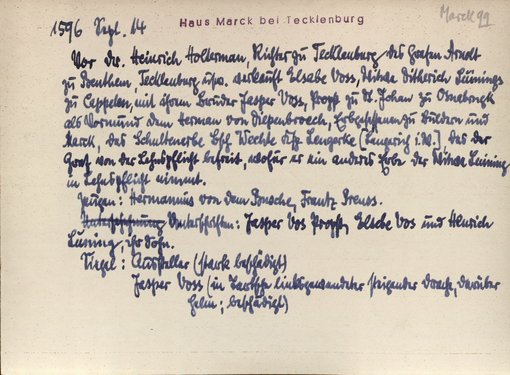 Marck 99
1596 Sept. 14
Haus Marck bei Tecklenburg
Vor Dr. Heinrich Holterman, Richter zu Tecklenburg des Grafen Arnolt
zu Bentheim, Tecklenburg usw. verkauft Elsabe Voss, Witwe Ditherich Lünings
zu Cappelen, mit ihrem Bruder Jasper Voss, Propst zu St. Johan zu Osnabrugk
als Vormund dem Herman von Diepenbroech, Erbgesessen zu Buldern und
Marck, das Schultenerbe Bsch. Wechte Ksp. Lengerke (Lengerich i.W.) das der
Graf von der Lehnspflicht befreit, wofür er ein anderes Erbe der Witwe Lüning
in Lehnspflicht nimmt.
Zeugen: Hermannus von dem Brusche, Frantz Breuss.
Unterzeichnung Unterschriften: Jasper Vos Propst, Elsebe Vos und Henrich
Lüning, ihr Sohn.
Siegel: Aussteller (stark beschädigt)
Jasper Voss (in Tartsche linksgewandeter steigender Drache, darüber
Helm; beschädigt)